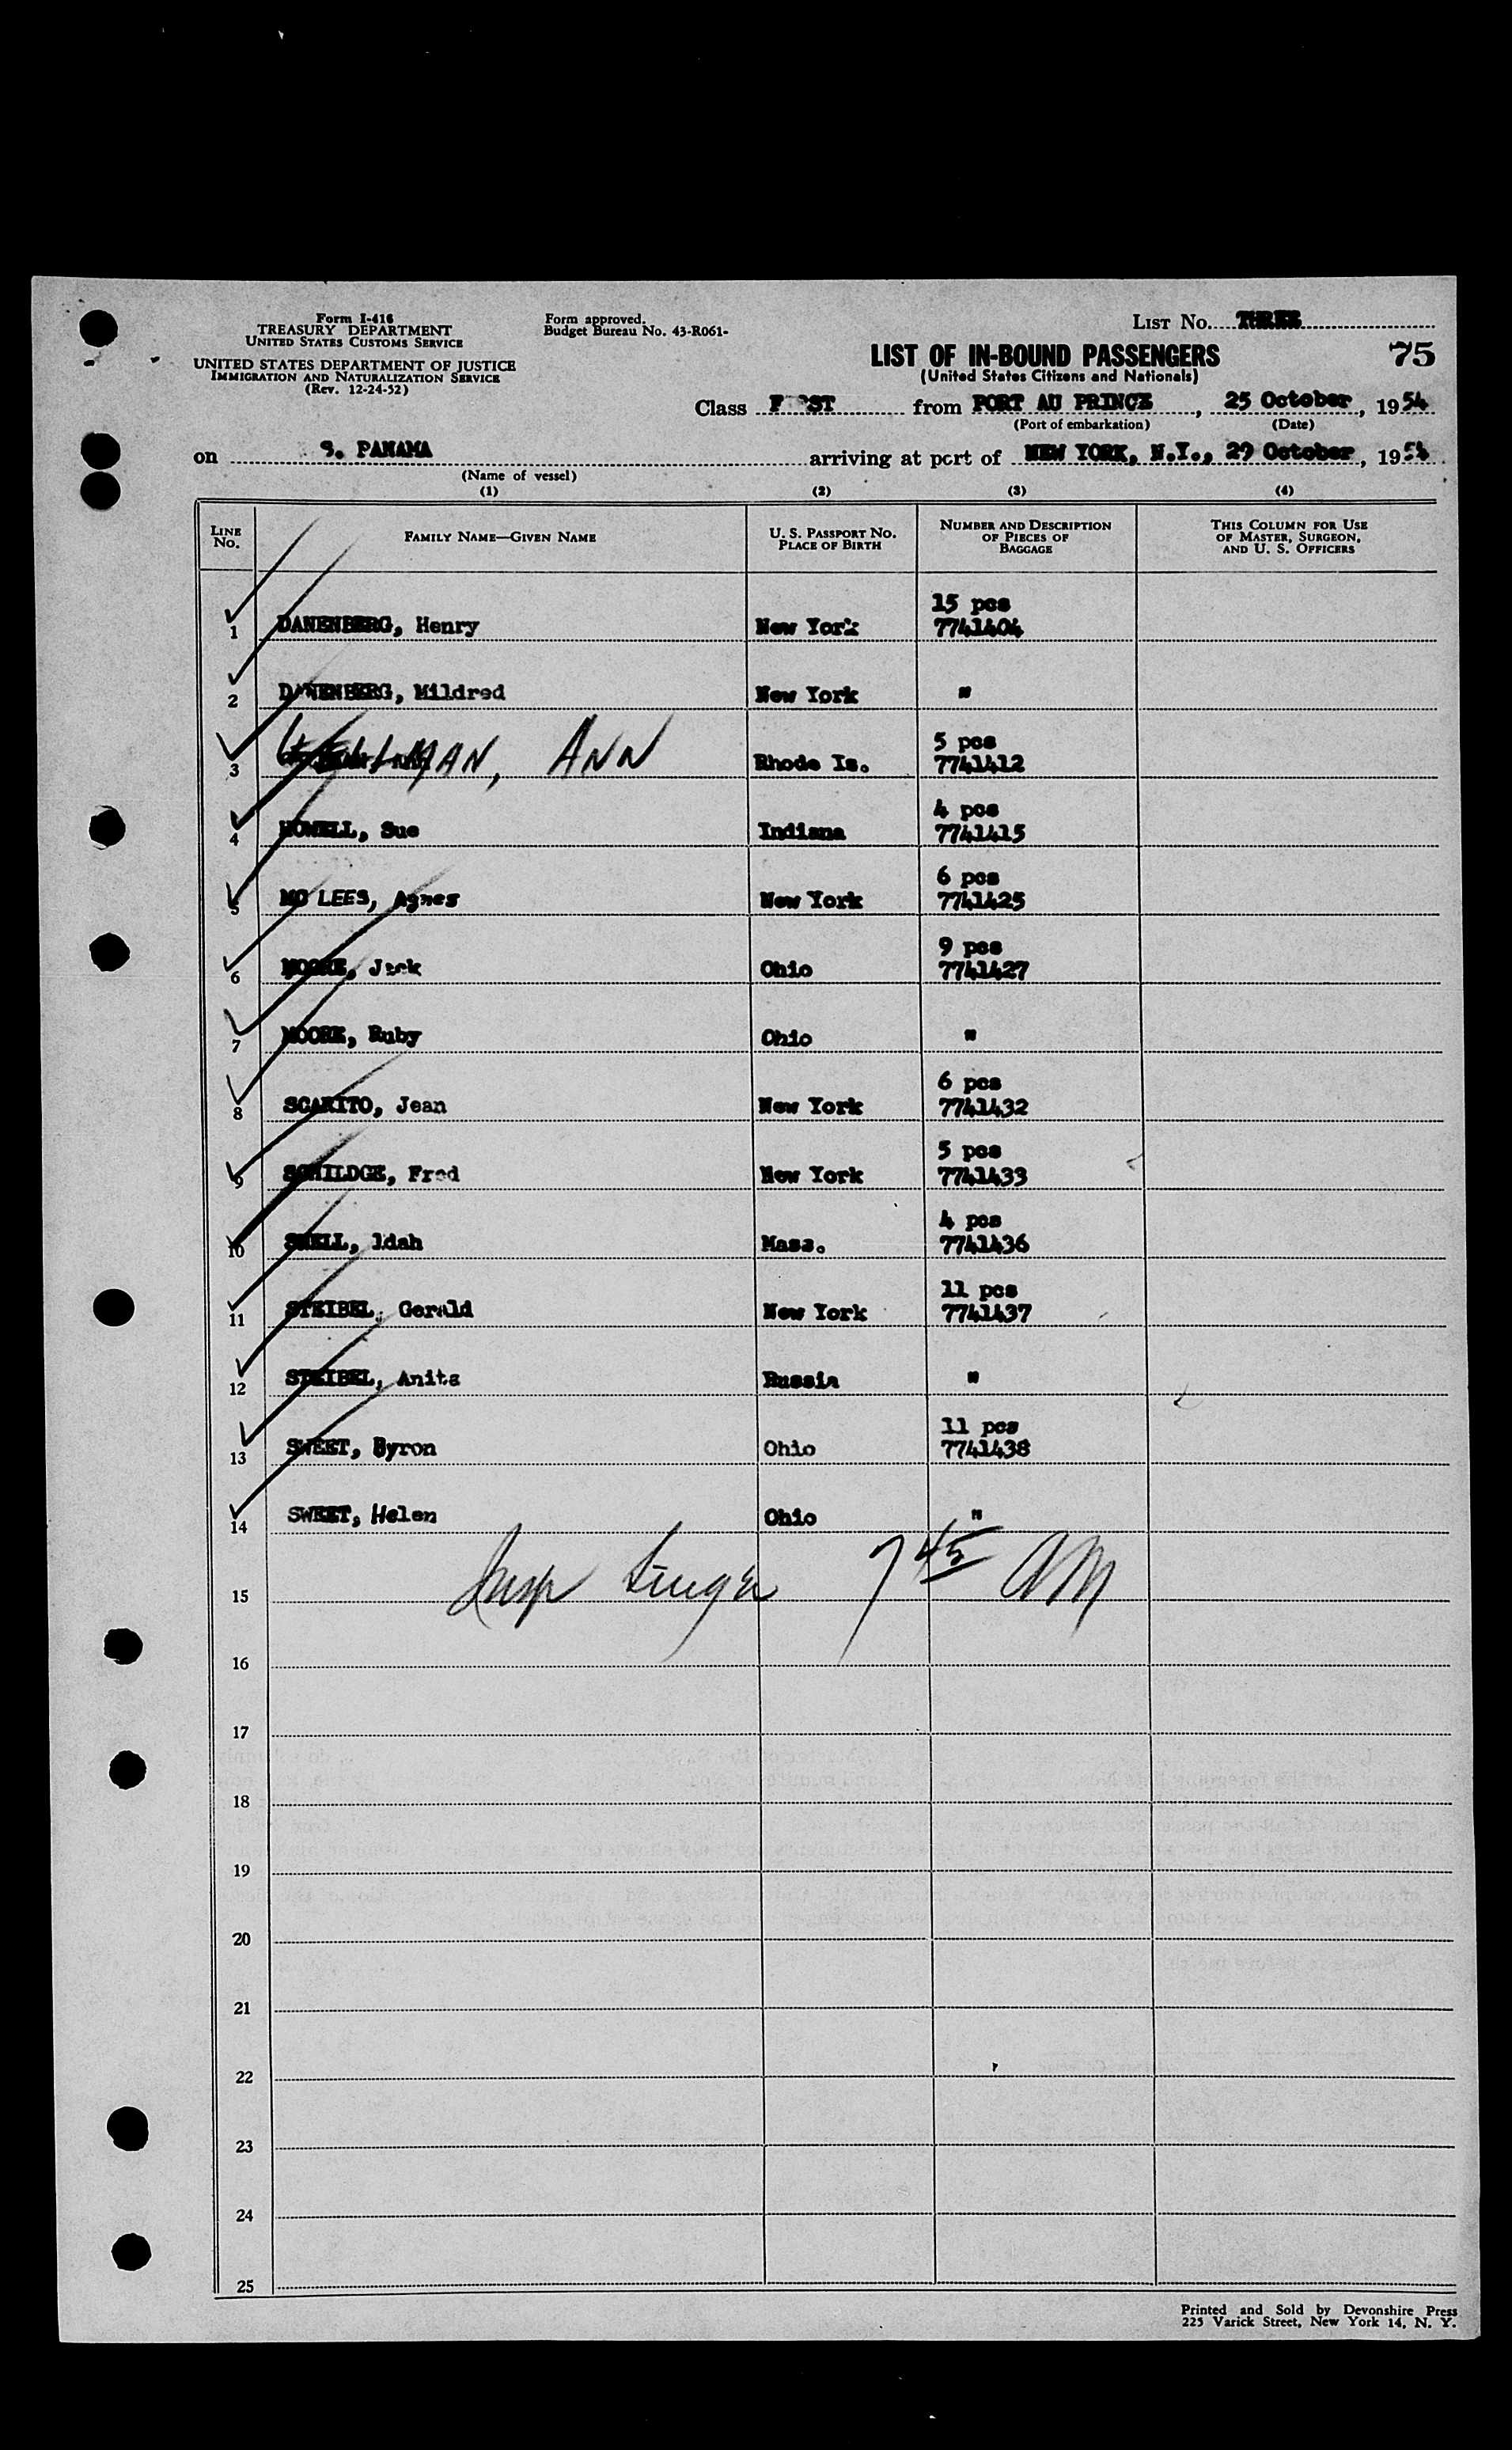 Form I-416
TREASURY DEPARTMENT
UNITED STATES CUSTOMS SERVICE
UNITED STATES DEPARTMENT OF JUSTICE
IMMIGRATION AND NATURALIZATION SERVICE
(Rev. 12-24-52)
Form approved.
Budget Bureau No. 43-R061-
LIST No. THREE
LIST OF IN-BOUND PASSENGERS 75
(United States Citizens and Nationals)
Class F ST from PORT AU PRINCE, 25 October, 1954
(Port of embarkation) (Date)
on S. PANAMA arriving at port of NEW YORK, N.Y., 29 October, 1954
(Name of vessel)
(1) (2) (3) (4)
LINE No. FAMILY NAME—GIVEN NAME U. S. PASSPORT No. PLACE OF BIRTH NUMBER AND DESCRIPTION OF PIECES OF BAGGAGE THIS COLUMN FOR USE OF MASTER, SURGEON, AND U. S. OFFICERS
15 pcs
1 DANENBERG, Henry New York 7741404
2 DANENBERG, Mildred New York "
5 pcs
3 MAN, ANN Rhode Is. 7741412
4 pcs
4 HOWELL, Sue Indiana 7741415
6 pcs
5 MC LEES, Agnes New York 7741425
9 pcs
6 MOORE, Jack Ohio 7741427
7 MOORE, Ruby Ohio "
6 pcs
8 SCARITO, Jean New York 7741432
5 pcs
9 SCHILDGE, Fred New York 7741433
4 pcs
10 SNELL, Idah Mass. 7741436
11 pcs
11 STEIBEL, Gerald New York 7741437
12 STEIBEL, Anita Russia "
11 pcs
13 SWEET, Byron Ohio 7741438
14 SWEET, Helen Ohio "
15 Insp 7 45 AM
16
17
18
19
20
21
22
23
24
25
Printed and Sold by Devonshire Press
225 Varick Street, New York 14, N. Y.